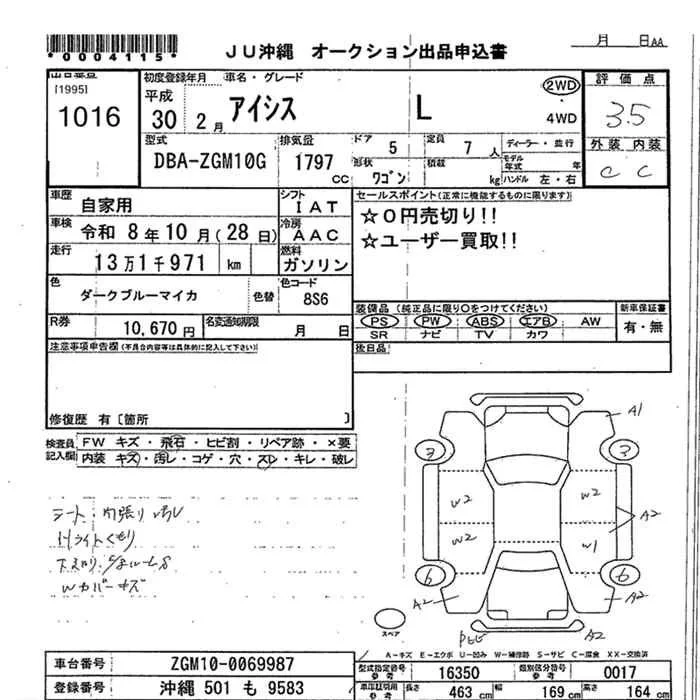 *0004115*
JU沖縄 オークション出品申込書
月 日AA
出品番号
[1995]
1016
初度登録年月 車名・グレード
平成
30 2月 アイシス L
2WD
4WD
評価点
3.5
外装 内装
C C
型式 排気量 ドア 5 定員 7人
DBA-ZGM10G 1797 CC
形状 ワゴン 積載 kg
ディーラー・並行
モデル年式 年
ハンドル 左・右
車歴 自家用
シフト IAT
車検 令和 8年 10月(28日)
冷房 AAC
走行 13万1千971 km
燃料 ガソリン
色 ダークブルーマイカ 色替
色コード 8S6
R券 10,670円 名変通知期限 月 日
セールスポイント(正常に機能するものに限ります)
☆0円売切り!!
☆ユーザー買取!!
装備品(純正品に限り○をつけてください)
PS PW ABS エアB AW
SR ナビ TV カワ
新車保証書
有・無
後日品
注意事項申告欄(不具合内容等は具体的に記入して下さい)
修復歴 有〔箇所 〕
検査員記入欄
FW キズ・飛石・ヒビ割・リペア跡・×要
内装 キズ・汚レ・コゲ・穴・スレ・キレ・破レ
シート・内張り汚レ
Hライトくもり
Wカバーキズ
A1
3 3
W2 W2
A2
W2 W1
6 6
A2 A2
A2
スペア
A-キズ E-エクボ U-凹み W-補修跡 S-サビ C-腐食 XX-交換済
車台番号 ZGM10-0069987
登録番号 沖縄 501 も 9583
型式指定番号 参考 16350 類別区分番号 参考 0017
車庫証明用 参考 長さ 463 cm 幅 169 cm 高さ 164 cm